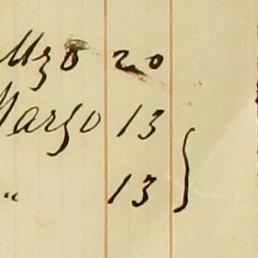 Mzo 20
Marzo 13
" 13